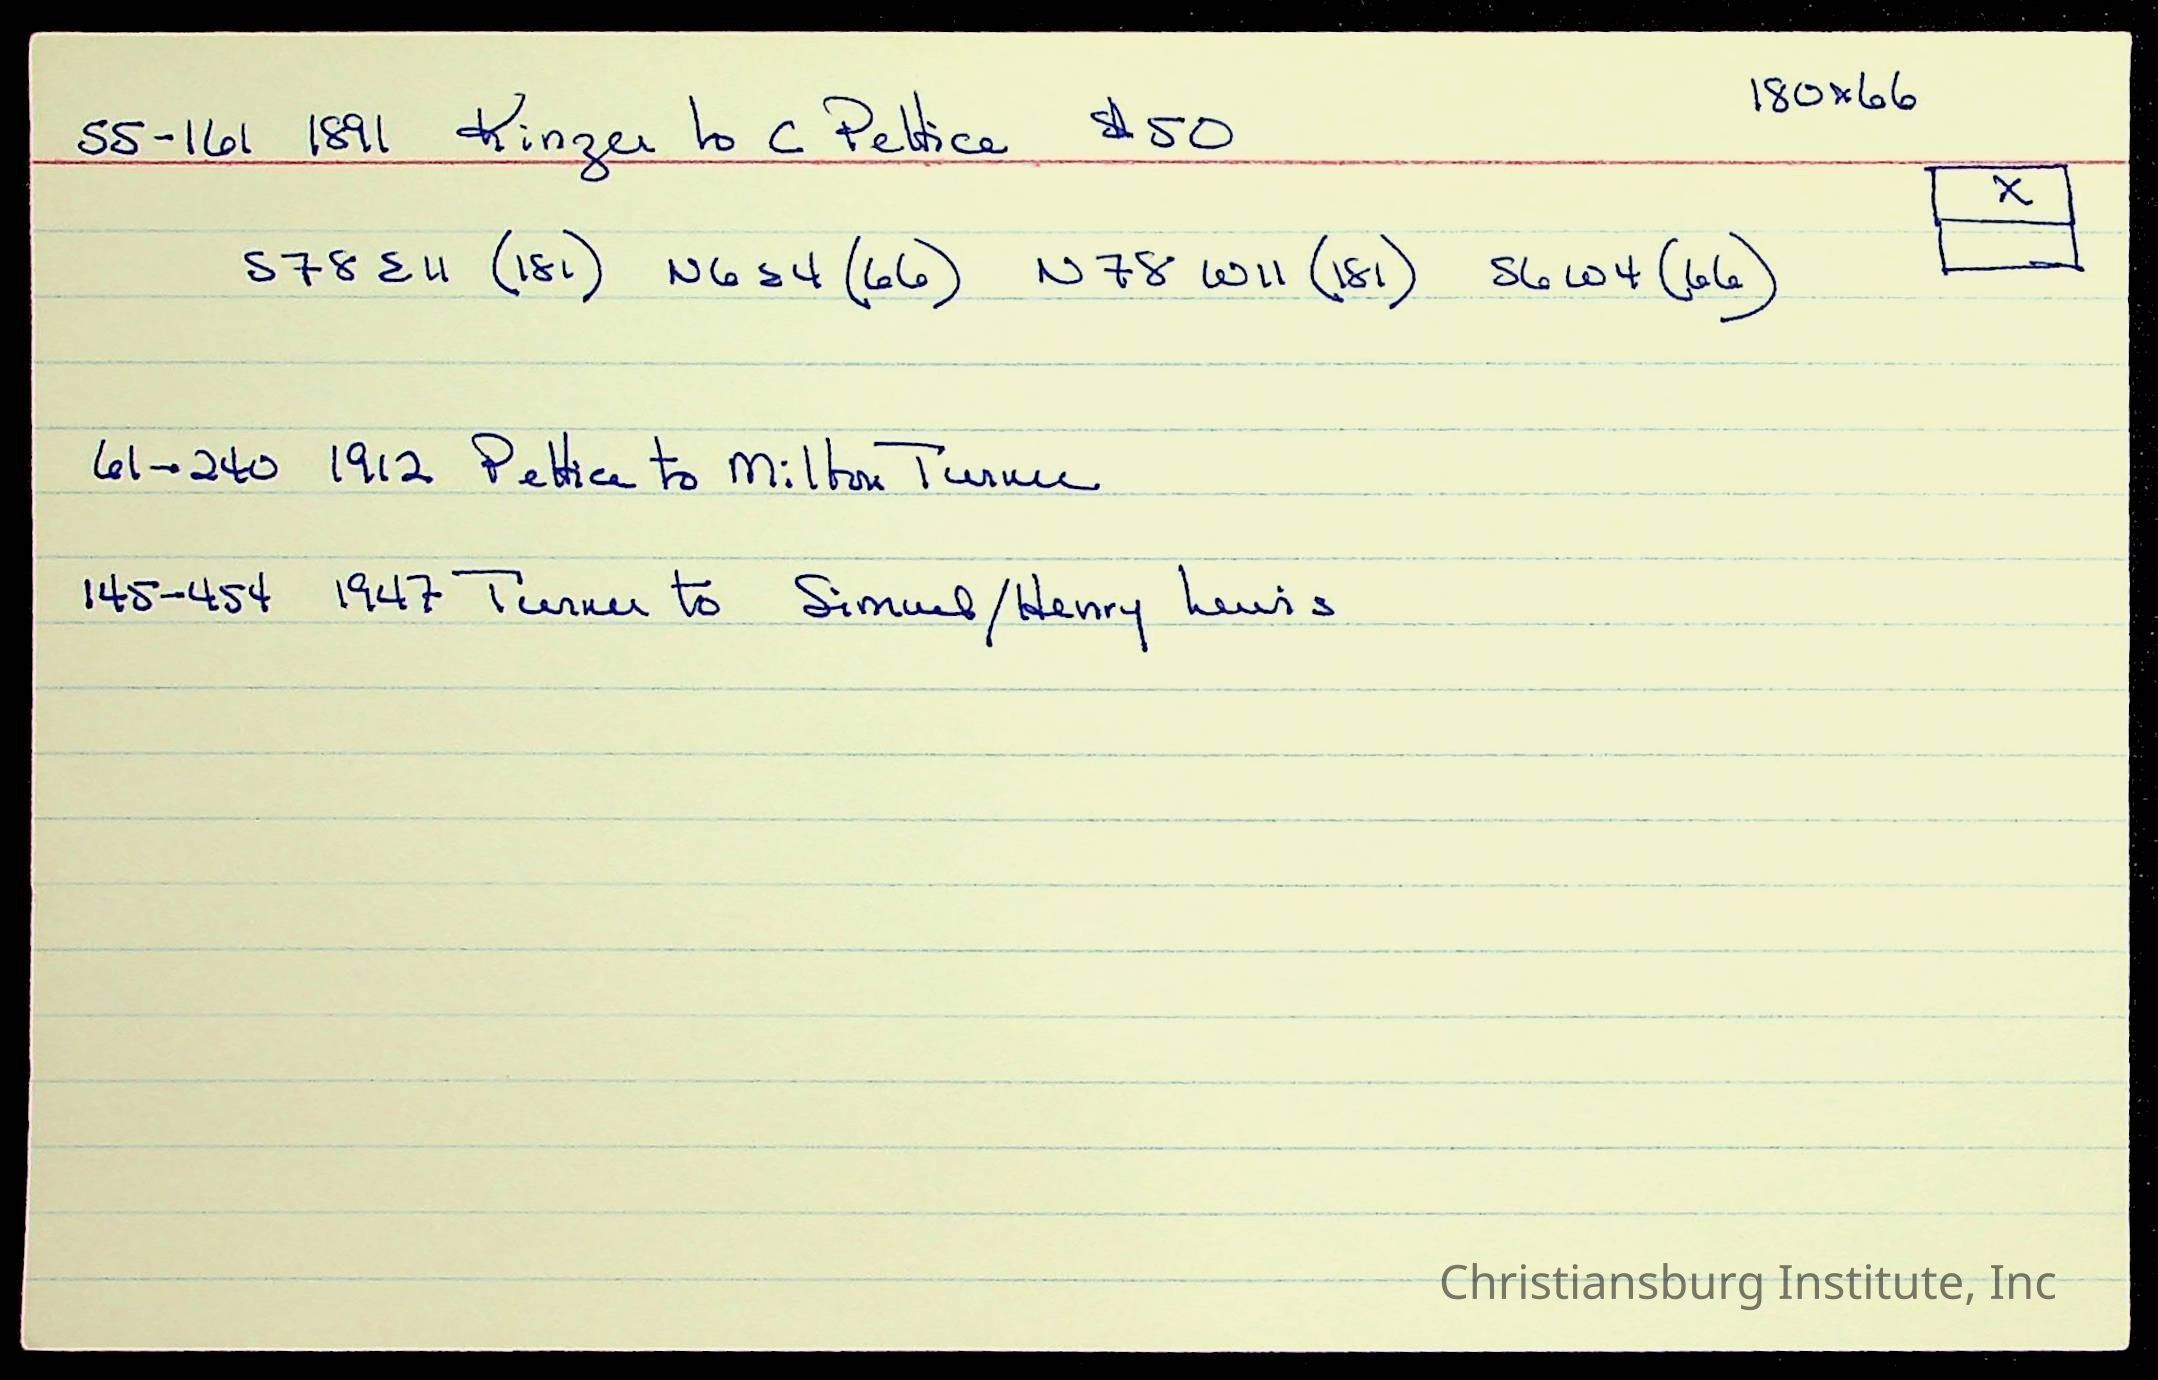 180x66
55-161 1891 Kinzer to C Pettice $50
X
S78E11 (181) N6E4 (66) N78W11 (181) S6W4 (66)
61-240 1912 Pettice to Milton Turner
145-454 1947 Turner to Simuel/Henry Lewis
Christiansburg Institute, Inc